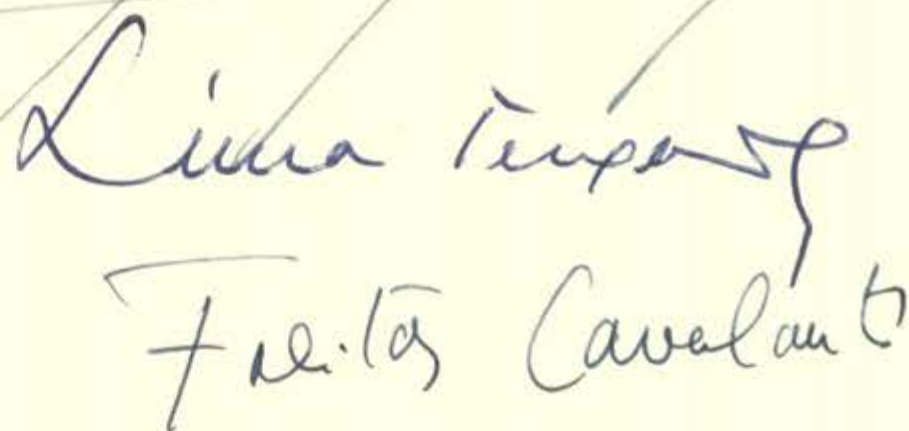 Lima Teixeira
Freitas Cavalcanti